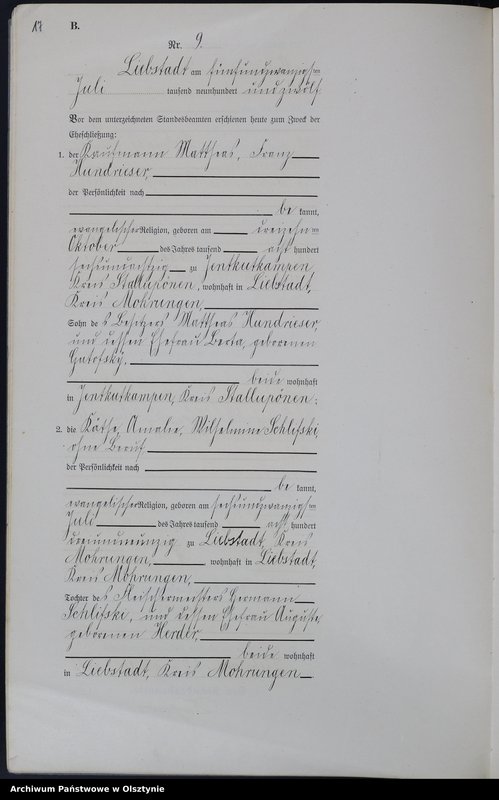 17 B.
Nr. 9.
Liebstadt am fünfundzwanzigsten
Juli tausend neunhundert und zwölf
Vor dem unterzeichneten Standesbeamten erschienen heute zum Zweck der
Eheschließung:
1. der Kaufmann Matthes, Franz
Hundrieser,
der Persönlichkeit nach
be kannt,
evangelischer Religion, geboren am dreizehnten
Oktober des Jahres tausend acht hundert
sechsundachtzig zu Jentkutkampen
Kreis Stallupönen, wohnhaft in Liebstadt,
Kreis Mohrungen,
Sohn des Besitzers Matthes Hundrieser,
und dessen Ehefrau Berta, geborenen
Gutofsky,
beide wohnhaft
in Jentkutkampen, Kreis Stallupönen;
2. die Käthe, Amalie, Wilhelmine Schlifski,
ohne Beruf
der Persönlichkeit nach
be kannt,
evangelischer Religion, geboren am sechsundzwanzigsten
Juli des Jahres tausend acht hundert
dreiundneunzig zu Liebstadt, Kreis
Mohrungen, wohnhaft in Liebstadt,
Kreis Mohrungen,
Tochter des Fleischermeisters Hermann
Schlifski, und dessen Ehefrau Auguste,
geborenen Herder,
beide wohnhaft
in Liebstadt, Kreis Mohrungen
Archiwum Państwowe w Olsztynie